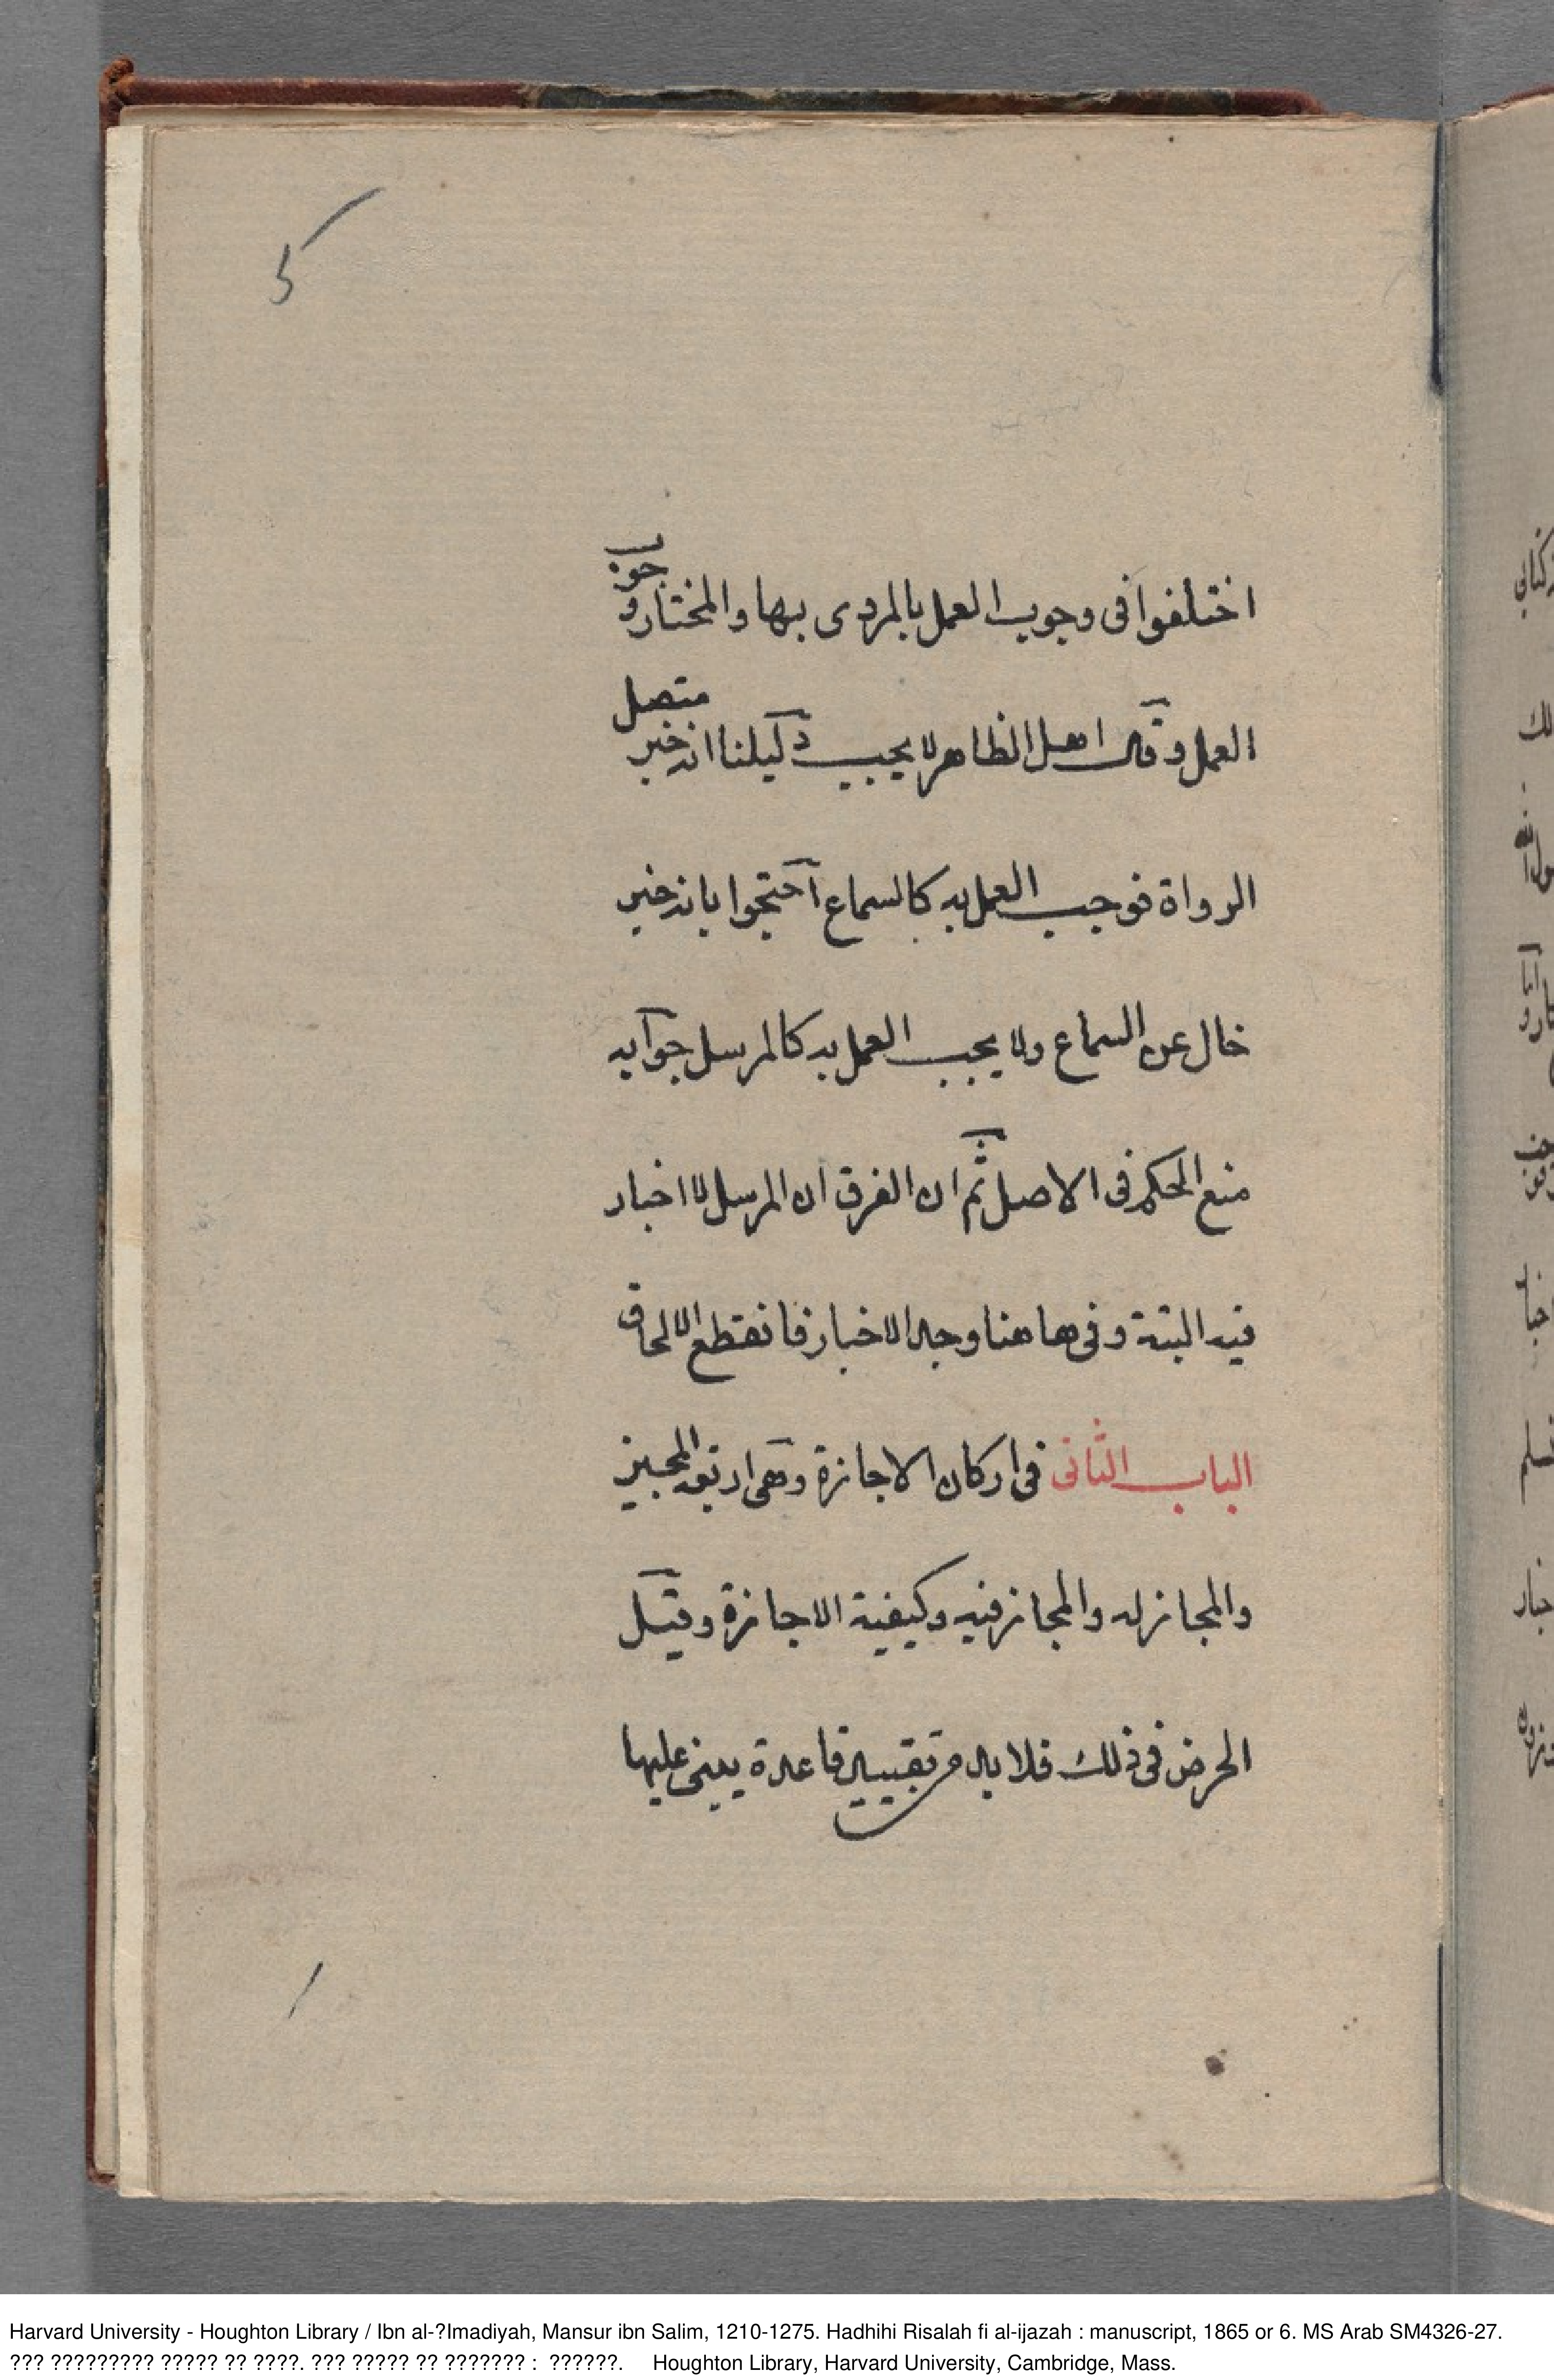 5
اختلفوا فى وجوب العمل بالمروى بها والمختار وجوب
العمل وقال اهل الظاهر لا يجب دليلنا انه خبر متصل
الرواة فوجب العمل به كالسماع احتجوا بانه خبر
خال عن السماع ولا يجب العمل به كالمرسل جوابه
منع الحكم فى الاصل ثم ان الفرق ان المرسل لا اخبار
فيه البتة وفى هاهنا وجد الاخبار فانقطع الالحاق
الباب الثانى فى اركان الاجازة وهى اربعة المجيز
والمجاز له والمجاز فيه وكيفية الاجازة وقبل
الخوض فى ذلك فلا بد من قاعدة يبنى عليها
Harvard University - Houghton Library / Ibn al-?Imadiyah, Mansur ibn Salim, 1210-1275. Hadhihi Risalah fi al-ijazah : manuscript, 1865 or 6. MS Arab SM4326-27.
??? ????????? ????? ?? ????. ??? ????? ?? ??????? : ??????. Houghton Library, Harvard University, Cambridge, Mass.